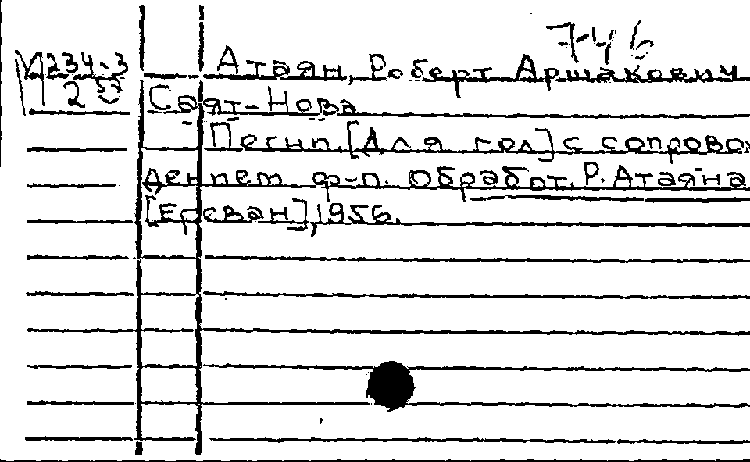 7-46
М234-3 Атаян, Роберт Аршакович
2 Саят-Нова
Песни. [Для гол] с сопровож
дением ф-п. Обработ. Р. Атаяна
[Ереван], 1956.